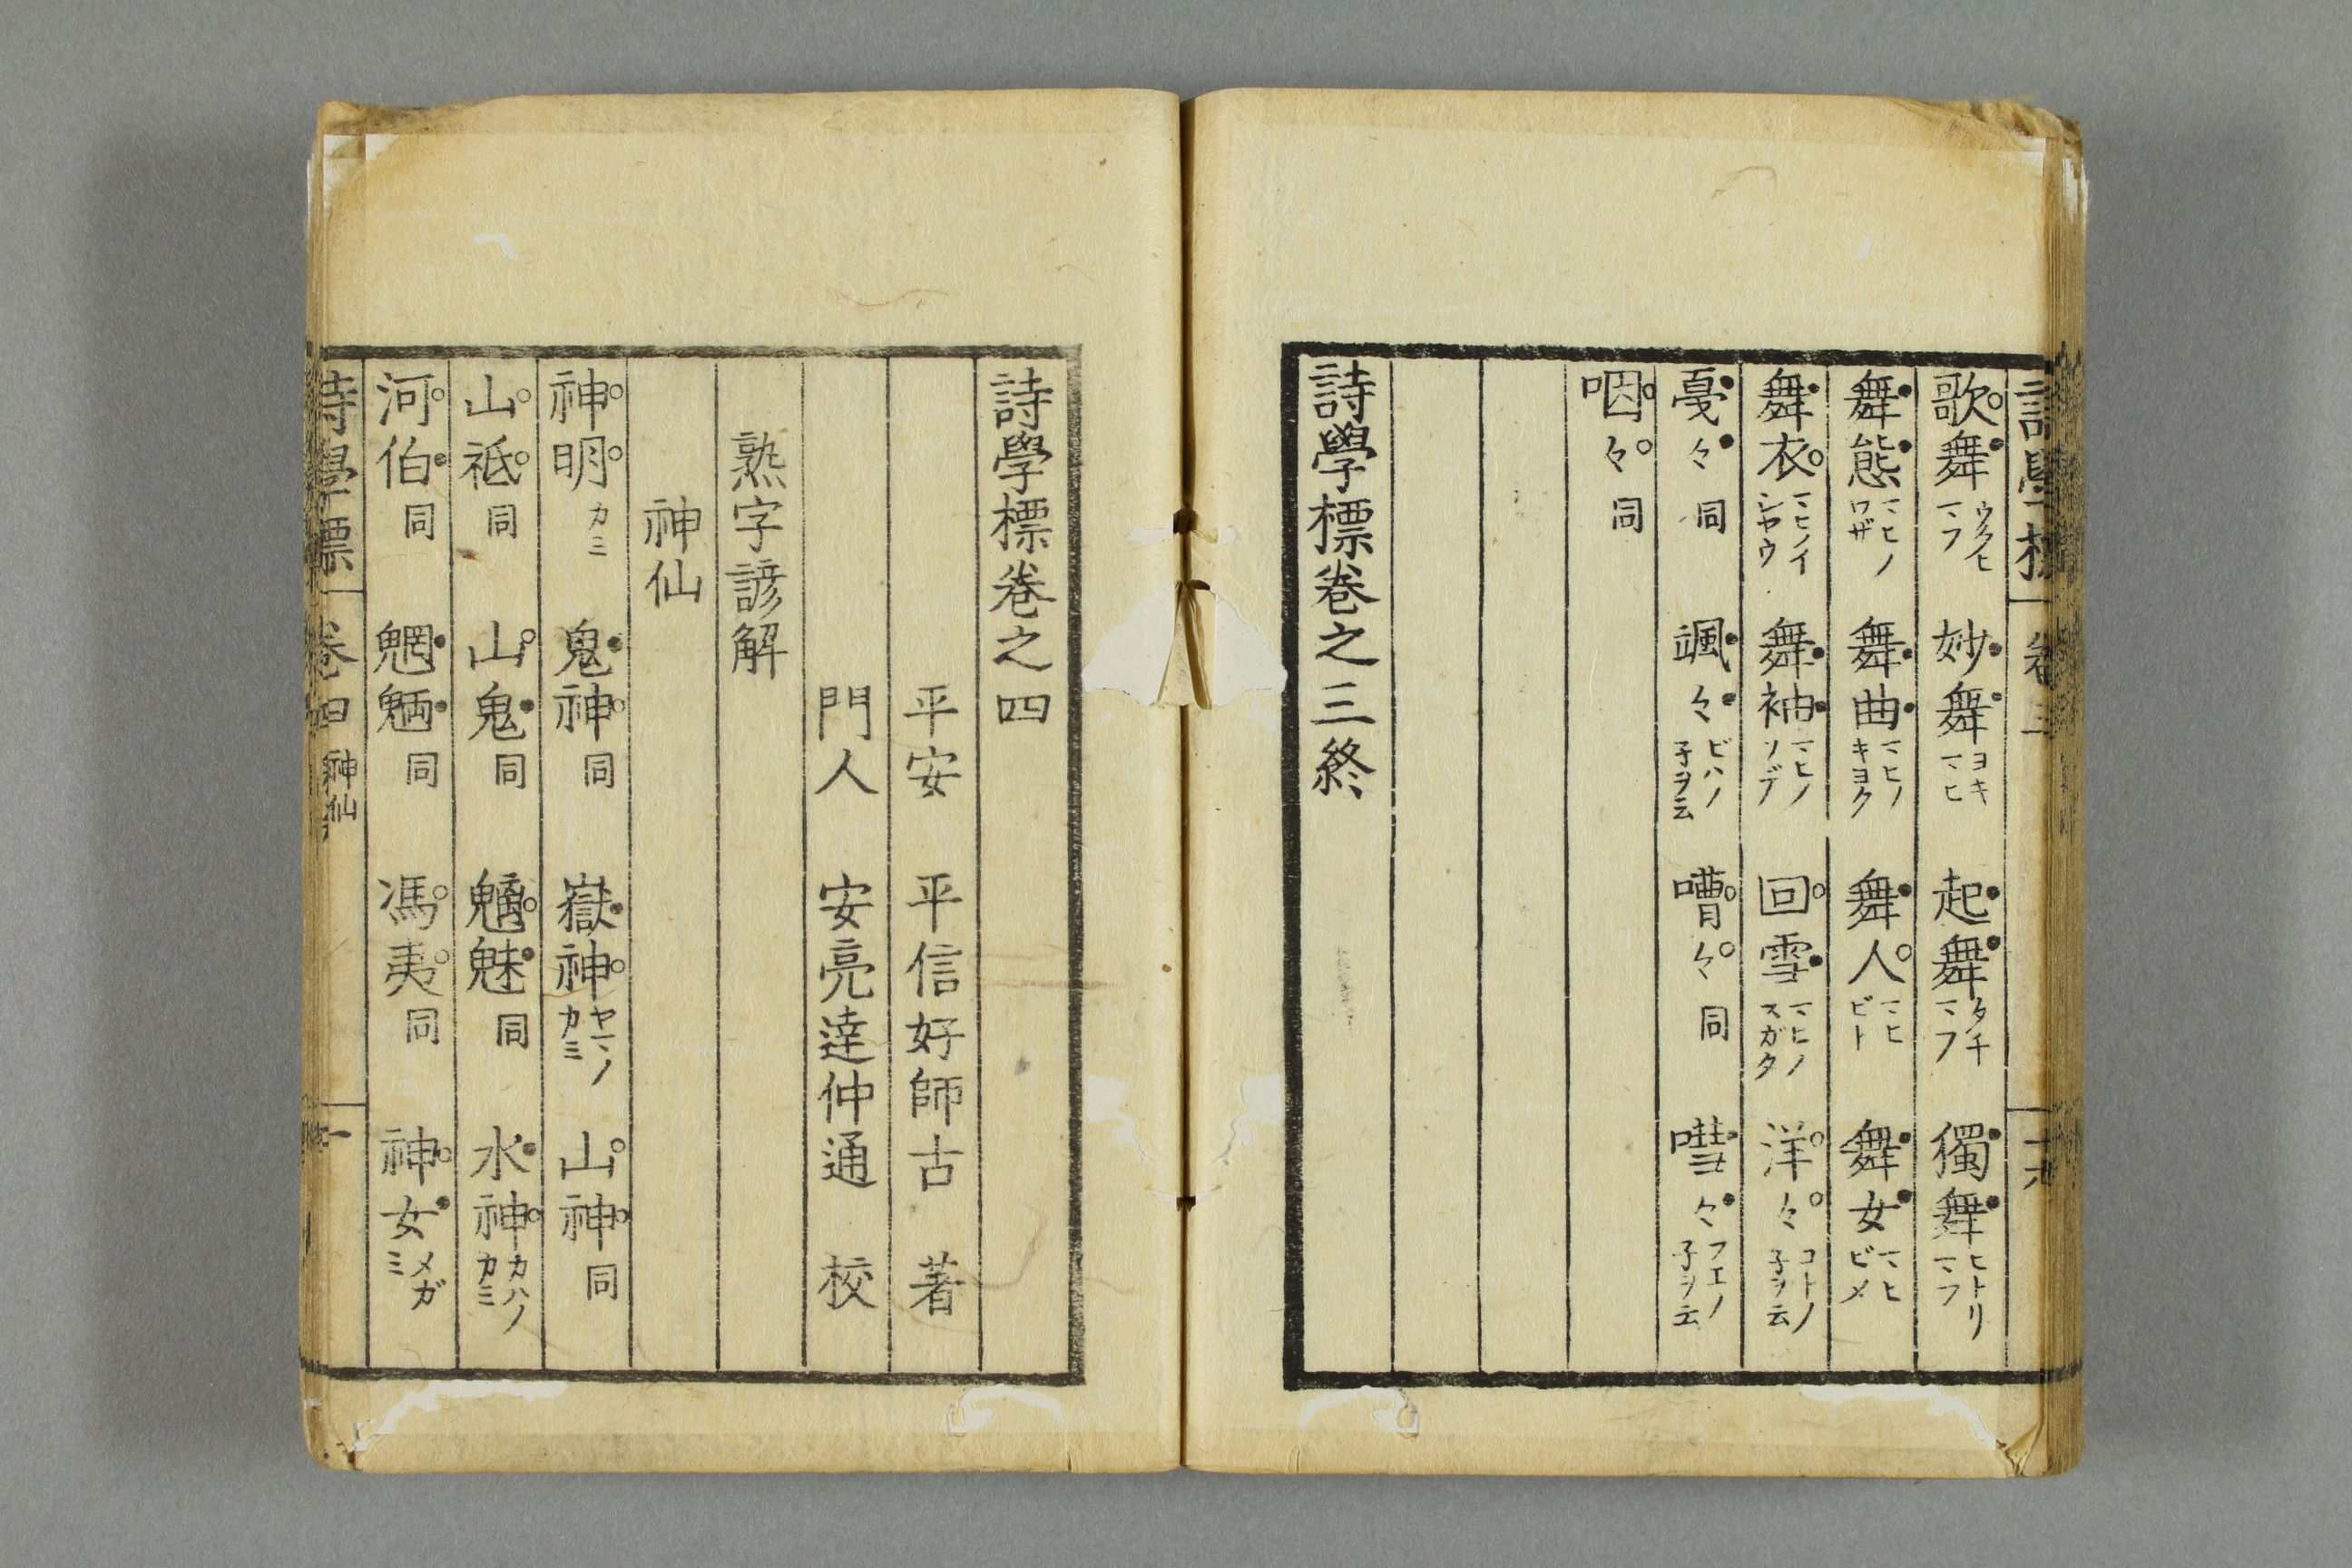 詩學標 卷三
歌舞 ウタヒマフ 妙舞 ヨキマヒ 起舞 タチマフ 獨舞 ヒトリマフ
舞態 マヒノワザ 舞曲 マヒノキヨク 舞人 マヒビト 舞女 マヒビメ
舞衣 マヒノイシヤウ 舞袖 マヒノソデ 回雪 マヒノスガタ 洋々 コトノ子ヲ云
戛々 同 颯々 ビハノ子ヲ云 嘈々 同 嘒々 フエノ子ヲ云
咽々 同
詩學標卷之三終
詩學標卷之四
平安 平信好師古 著
門人 安亮達仲通 校
熟字諺解
神仙
神明 カミ 鬼神 同 嶽神 ヤマノカミ 山神 同
山祇 同 山鬼 同 魑魅 同 水神 カハノカミ
河伯 同 魍魎 同 馮夷 同 神女 メガミ
詩學標 卷四 神仙 一